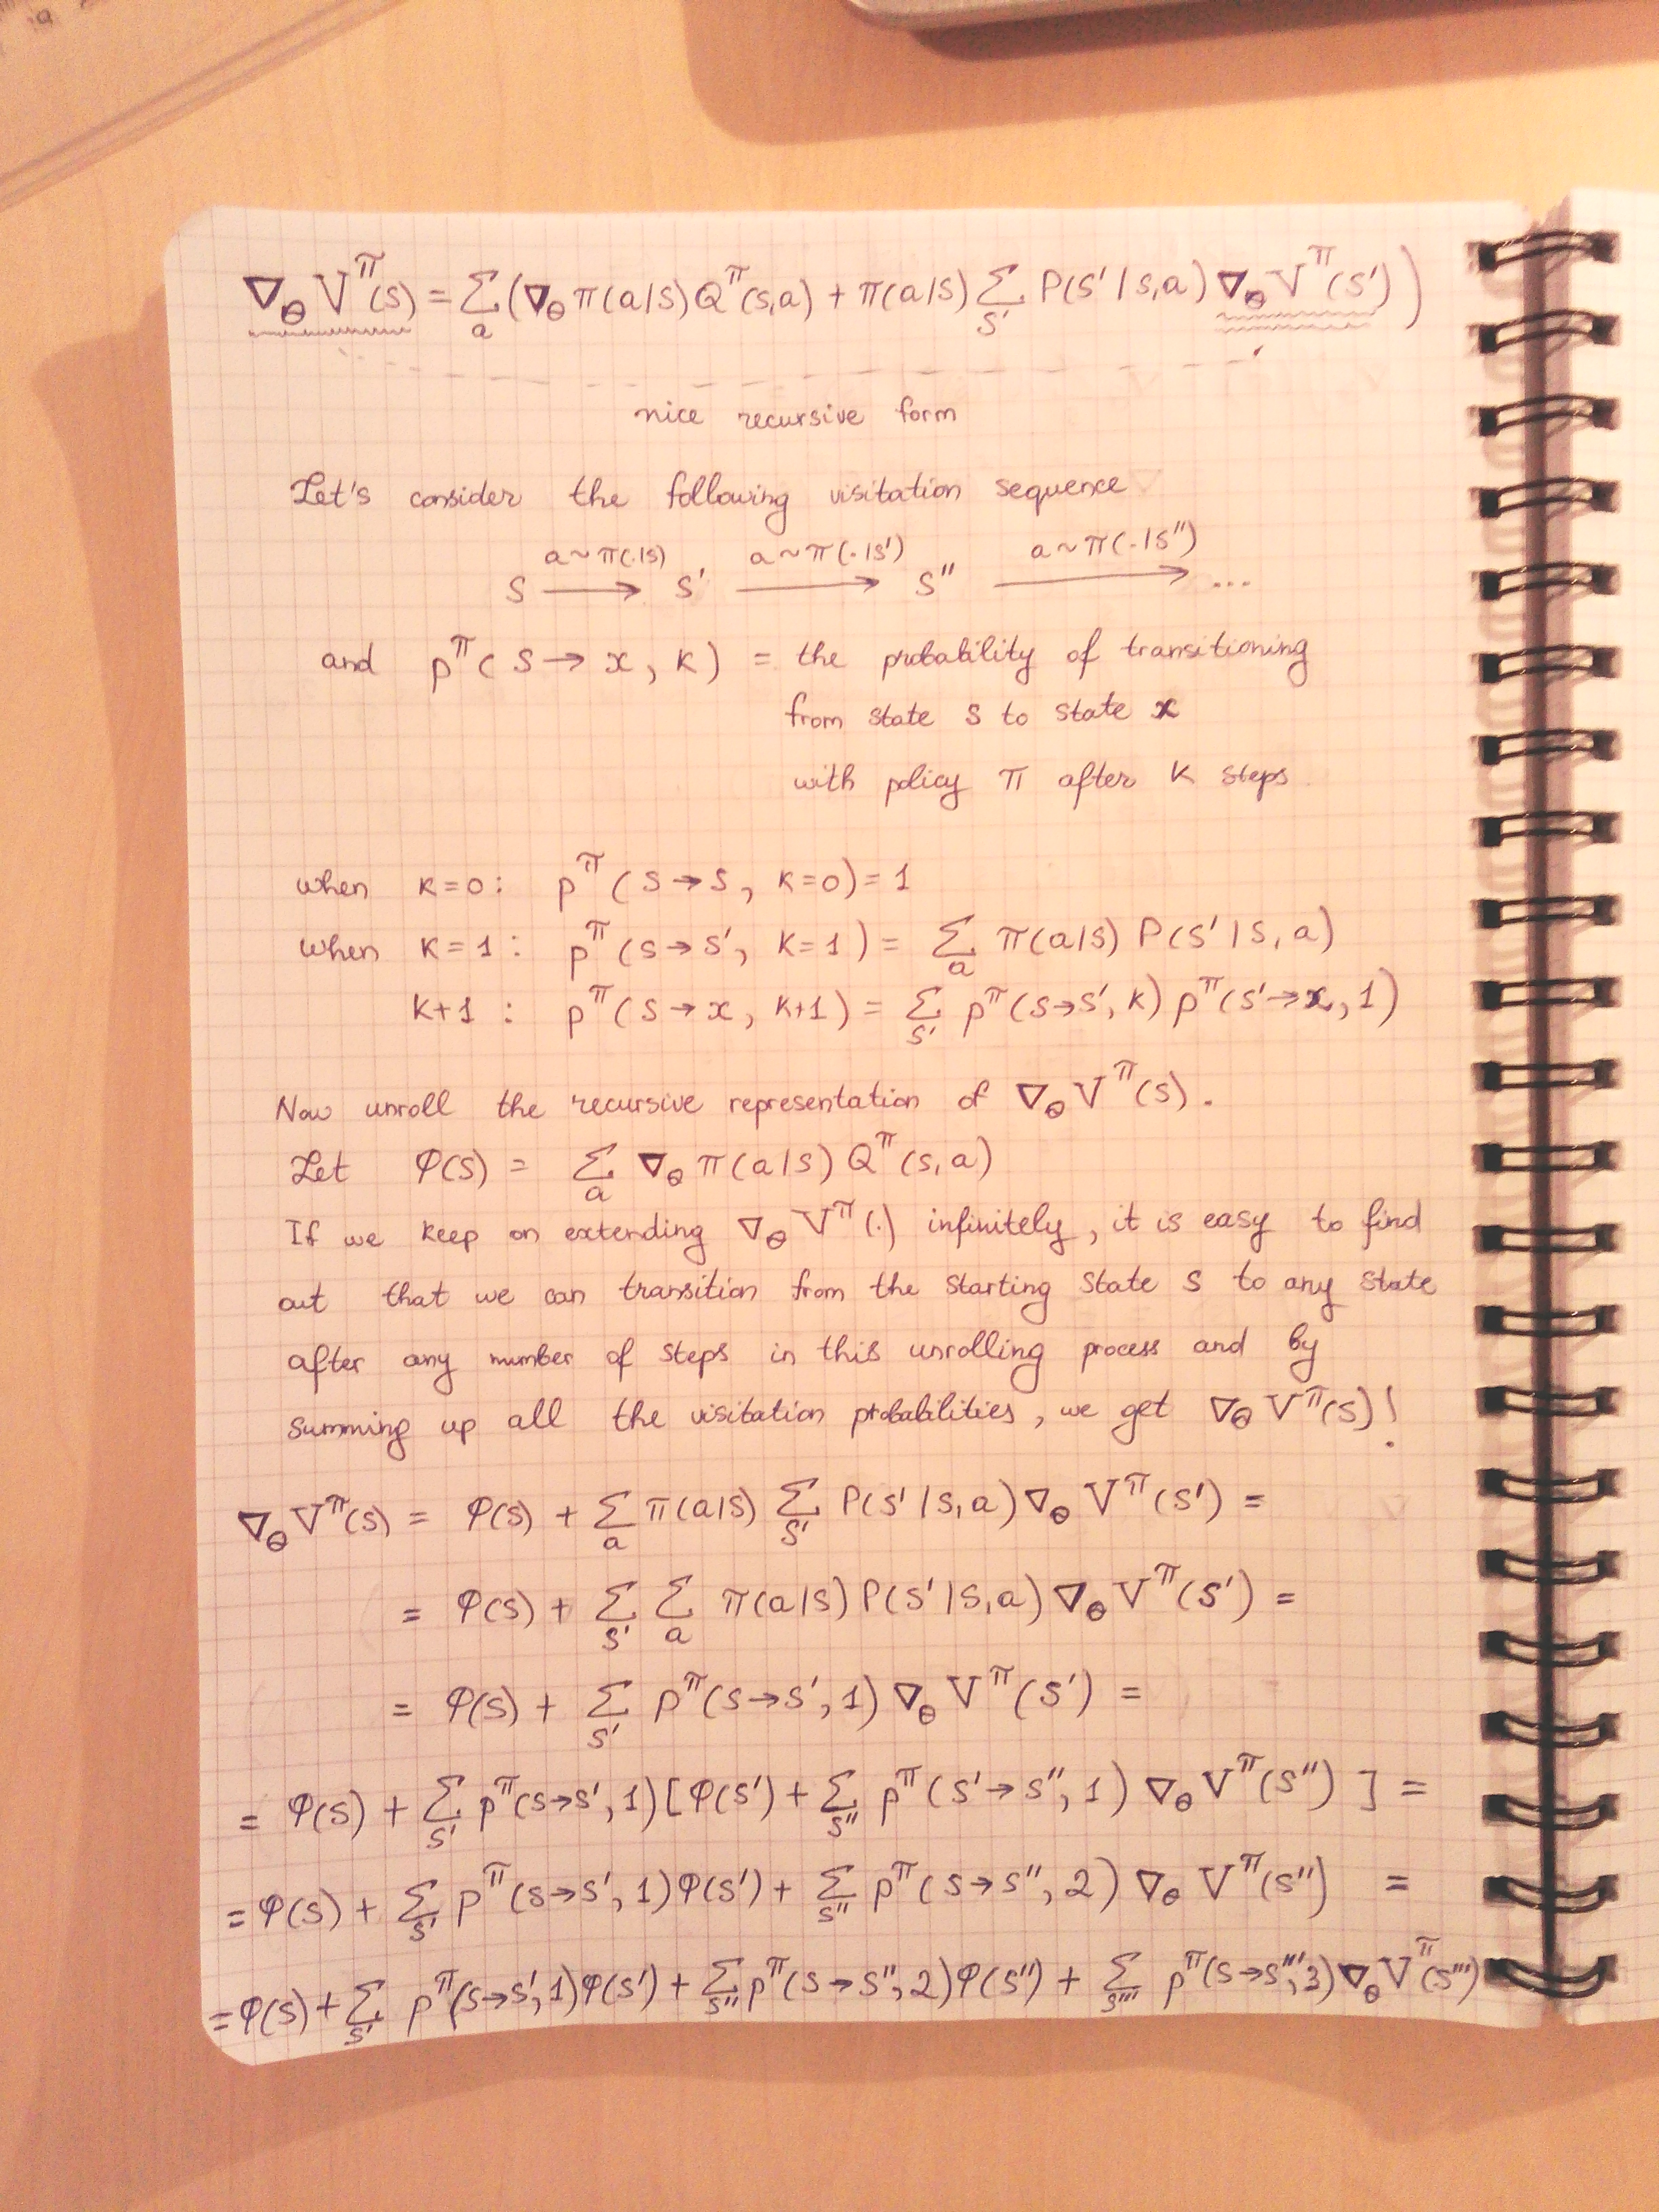 ∇_θ V^π(s) = Σ_a (∇_θ π(a|s) Q^π(s,a) + π(a|s) Σ_s' P(s'|s,a) ∇_θ V^π(s'))
nice recursive form
Let's consider the following visitation sequence
a~π(.|s) a~π(.|s') a~π(.|s'')
s → s' → s'' → ...
and p^π(s→x, k) = the probability of transitioning
from state s to state x
with policy π after k steps
when k=0: p^π(s→s, k=0)=1
when k=1: p^π(s→s', k=1) = Σ_a π(a|s) P(s'|s,a)
k+1: p^π(s→x, k+1) = Σ_s' p^π(s→s', k) p^π(s'→x, 1)
Now unroll the recursive representation of ∇_θ V^π(s).
Let φ(s) = Σ_a ∇_θ π(a|s) Q^π(s,a)
If we keep on extending ∇_θ V^π(.) infinitely, it is easy to find
out that we can transition from the starting state s to any state
after any number of steps in this unrolling process and by
summing up all the visitation probabilities, we get ∇_θ V^π(s)!
∇_θ V^π(s) = φ(s) + Σ_a π(a|s) Σ_s' P(s'|s,a) ∇_θ V^π(s') =
= φ(s) + Σ_s' Σ_a π(a|s) P(s'|s,a) ∇_θ V^π(s') =
= φ(s) + Σ_s' p^π(s→s', 1) ∇_θ V^π(s') =
= φ(s) + Σ_s' p^π(s→s', 1) [φ(s') + Σ_s'' p^π(s'→s'', 1) ∇_θ V^π(s'')] =
= φ(s) + Σ_s' p^π(s→s', 1) φ(s') + Σ_s'' p^π(s→s'', 2) ∇_θ V^π(s'') =
= φ(s) + Σ_s' p^π(s→s', 1) φ(s') + Σ_s'' p^π(s→s'', 2) φ(s'') + Σ_s''' p^π(s→s''', 3) ∇_θ V^π(s''')